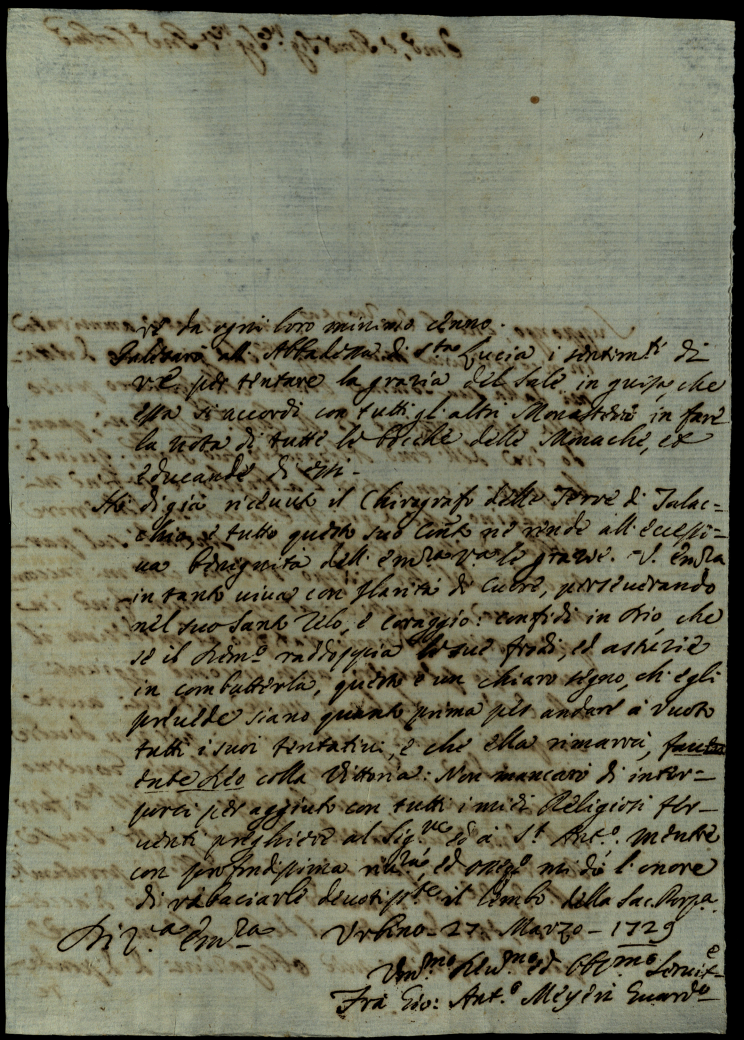 re da ogni loro minimo cenno.
all' Abbadessa di S.ta Lucia i sentim.ti di
V.E. per tentare la grazia del Sale in guisa, che
essa si accordi con tutti gl'altri Monasterii in fare
la nota di tutte le bocche delle Monache, et
educande di essi.
Hò di già ricevuto il Chirografo delle Terre di Talac=
chio, e tutto questo suo ne rende all'eccessi=
va benignità dell'Em.za V.a le grazie. V. Em.za
in tanto viva con ilarità di Cuore, perseverando
nel suo Santo Zelo, e coraggio: confidi in Dio, che
se il Dem.o raddoppia le sue frodi, ed astuzie
in combatterla, questo è un chiaro segno, ch'egli
prevede siano quanto prima per andare à vuoto
tutti i suoi tentativi, e che ella rimarrà, favo
ente Deo colla Vittoria: Non mancarò di inter=
porci per aggiuto con tutti i miei Religiosi fer=
venti preghiere al Sig.re ed à S.t Ant.o mentre
con profondissima ed mi dò l'onore
di ribaciarle devotis.te il lembo della Sac. Porp.a
Di V.a Em.za Urbino 27 Marzo 1729
Um.mo Dev.mo ed Obl.mo Servit.e
Fra Gio: Ant.o Meyeri Guard.o